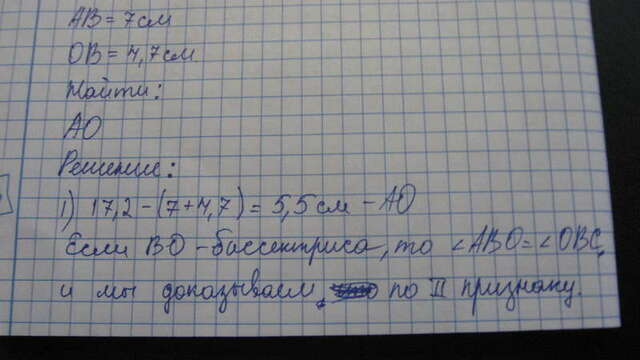 АВ = 7см
ОВ = 4,7см
Найти:
АО
Решение:
1) 17,2 - (7+4,7) = 5,5см - АО
Если ВО - бассектриса, то ∠АВО = ∠ОВС,
и мы доказываем по II признаку.